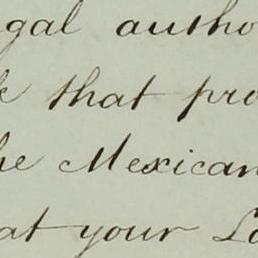 gal autho
that pro
he Mexican
at your Lo